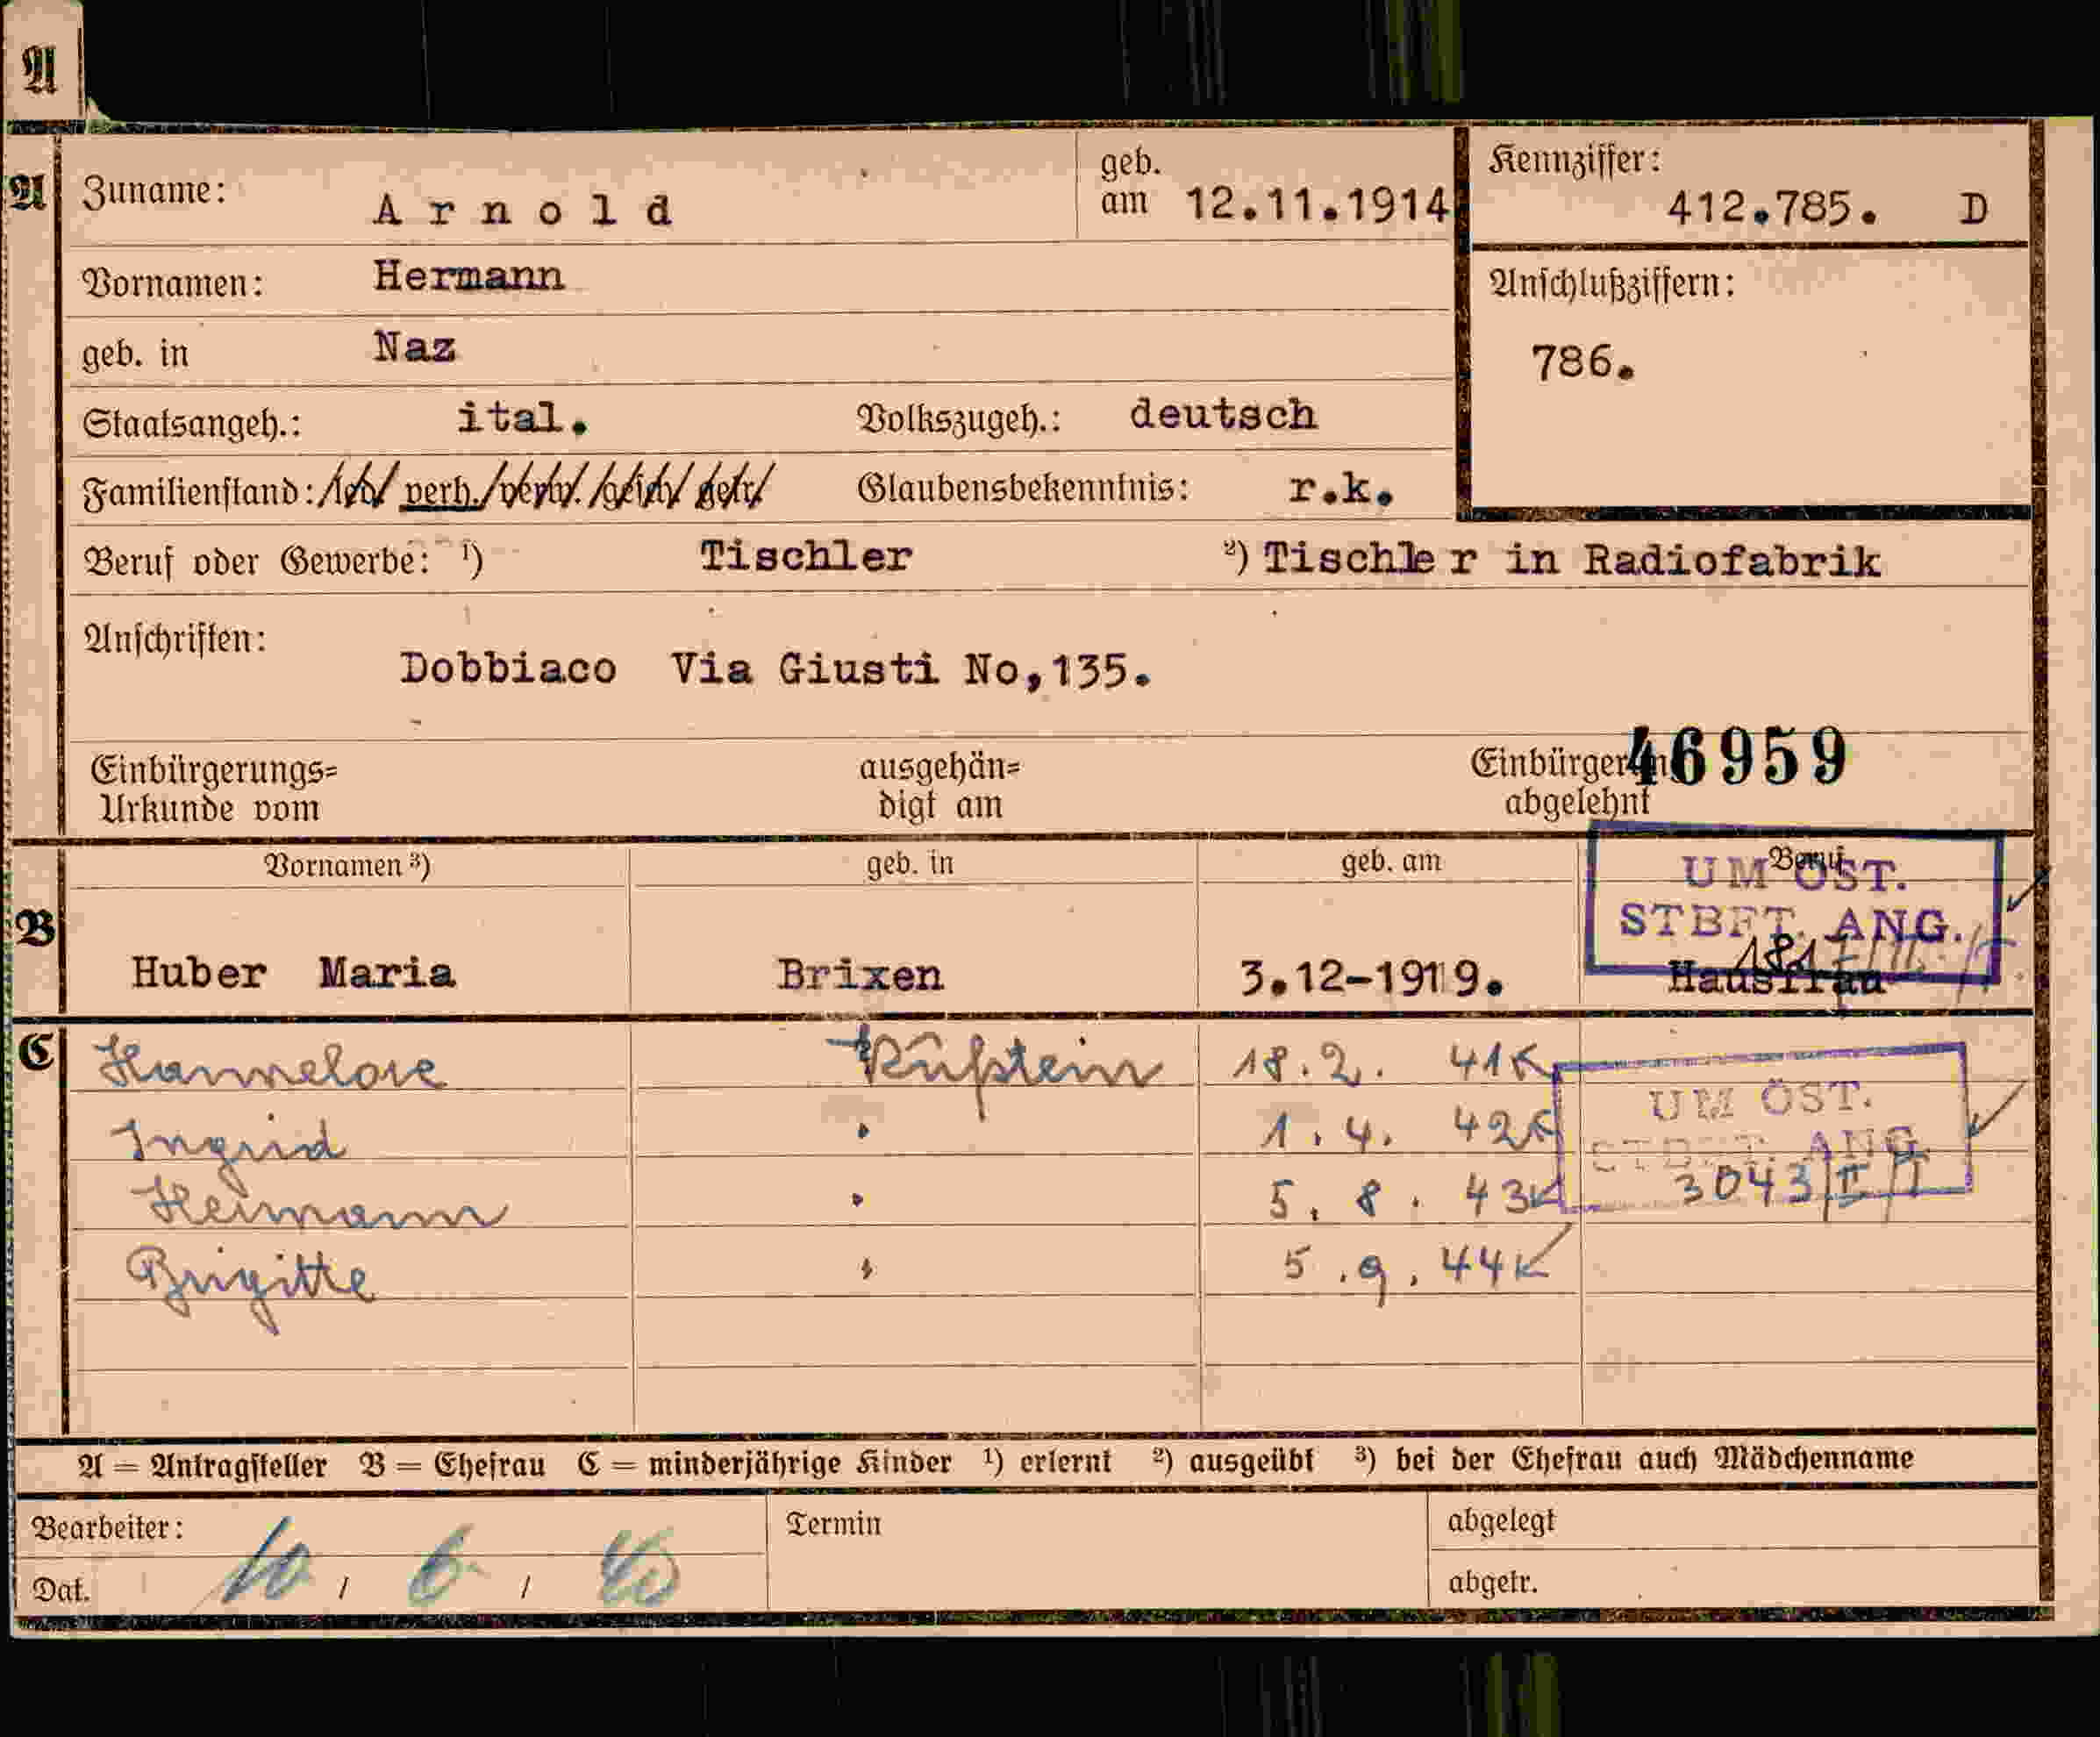 A
A Zuname: Arnold geb. am 12.11.1914 Kennziffer: 412.785. D
Vornamen: Hermann Anschlußziffern:
geb. in Naz 786.
Staatsangeh.: ital. Volkszugeh.: deutsch
Familienstand: led. verh. verw. gesch. getr. Glaubensbekenntnis: r.k.
Beruf oder Gewerbe: ¹) Tischler ²) Tischler in Radiofabrik
Anschriften: Dobbiaco Via Giusti No,135.
46959
Einbürgerungs= ausgehän= Einbürgerung
Urkunde vom digt am abgelehnt
Vornamen ³) geb. in geb. am Beruf
UM ÖST.
STBFT. ANG.
B Huber Maria Brixen 3.12-1919. Hausfrau
C Hannelore Kufstein 18.2. 41
Ingrid " 1.4. 42
Hermann " 5.8. 43
Brigitte " 5.9.44
UM ÖST.
STBFT. ANG.
3043/II
A = Antragsteller B = Ehefrau C = minderjährige Kinder ¹) erlernt ²) ausgeübt ³) bei der Ehefrau auch Mädchenname
Bearbeiter: Termin abgelegt
Dat. 10 / 6 / 40 abgetr.